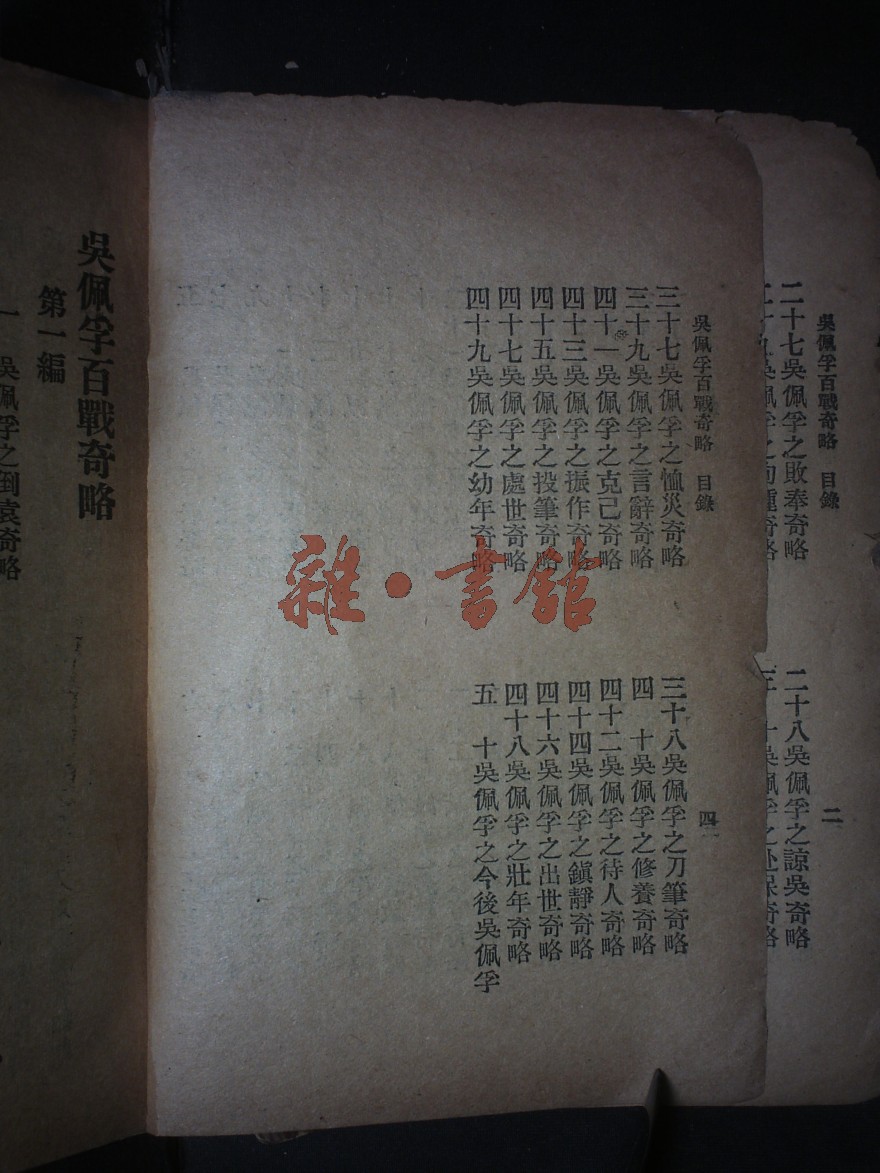 吳佩孚百戰奇略　目錄
二
二十七吳佩孚之敗奉奇略
二十八吳佩孚之諒吳奇略
吳佩孚百戰奇略　目錄
四
三十七吳佩孚之恤災奇略
三十八吳佩孚之刀筆奇略
三十九吳佩孚之言辭奇略
四　十吳佩孚之修養奇略
四十一吳佩孚之克己奇略
四十二吳佩孚之待人奇略
四十三吳佩孚之振作奇略
四十四吳佩孚之鎮靜奇略
四十五吳佩孚之投筆奇略
四十六吳佩孚之出世奇略
四十七吳佩孚之處世奇略
四十八吳佩孚之壯年奇略
四十九吳佩孚之幼年奇略
五　十吳佩孚之今後吳佩孚
雜·書館
吳佩孚百戰奇略
第一編
一　吳佩孚之倒袁奇略